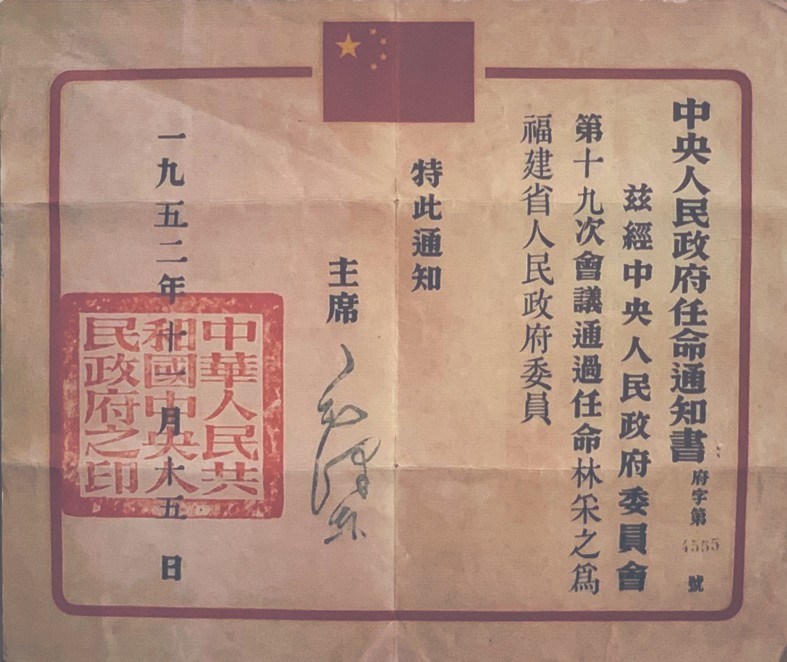 中央人民政府任命通知書
府字第4555號
兹經中央人民政府委員會
第十九次會議通過任命林采之爲
福建省人民政府委員
特此通知
主席 毛澤東
一九五二年十一月十五日
中華人民共
和國中央人
民政府之印